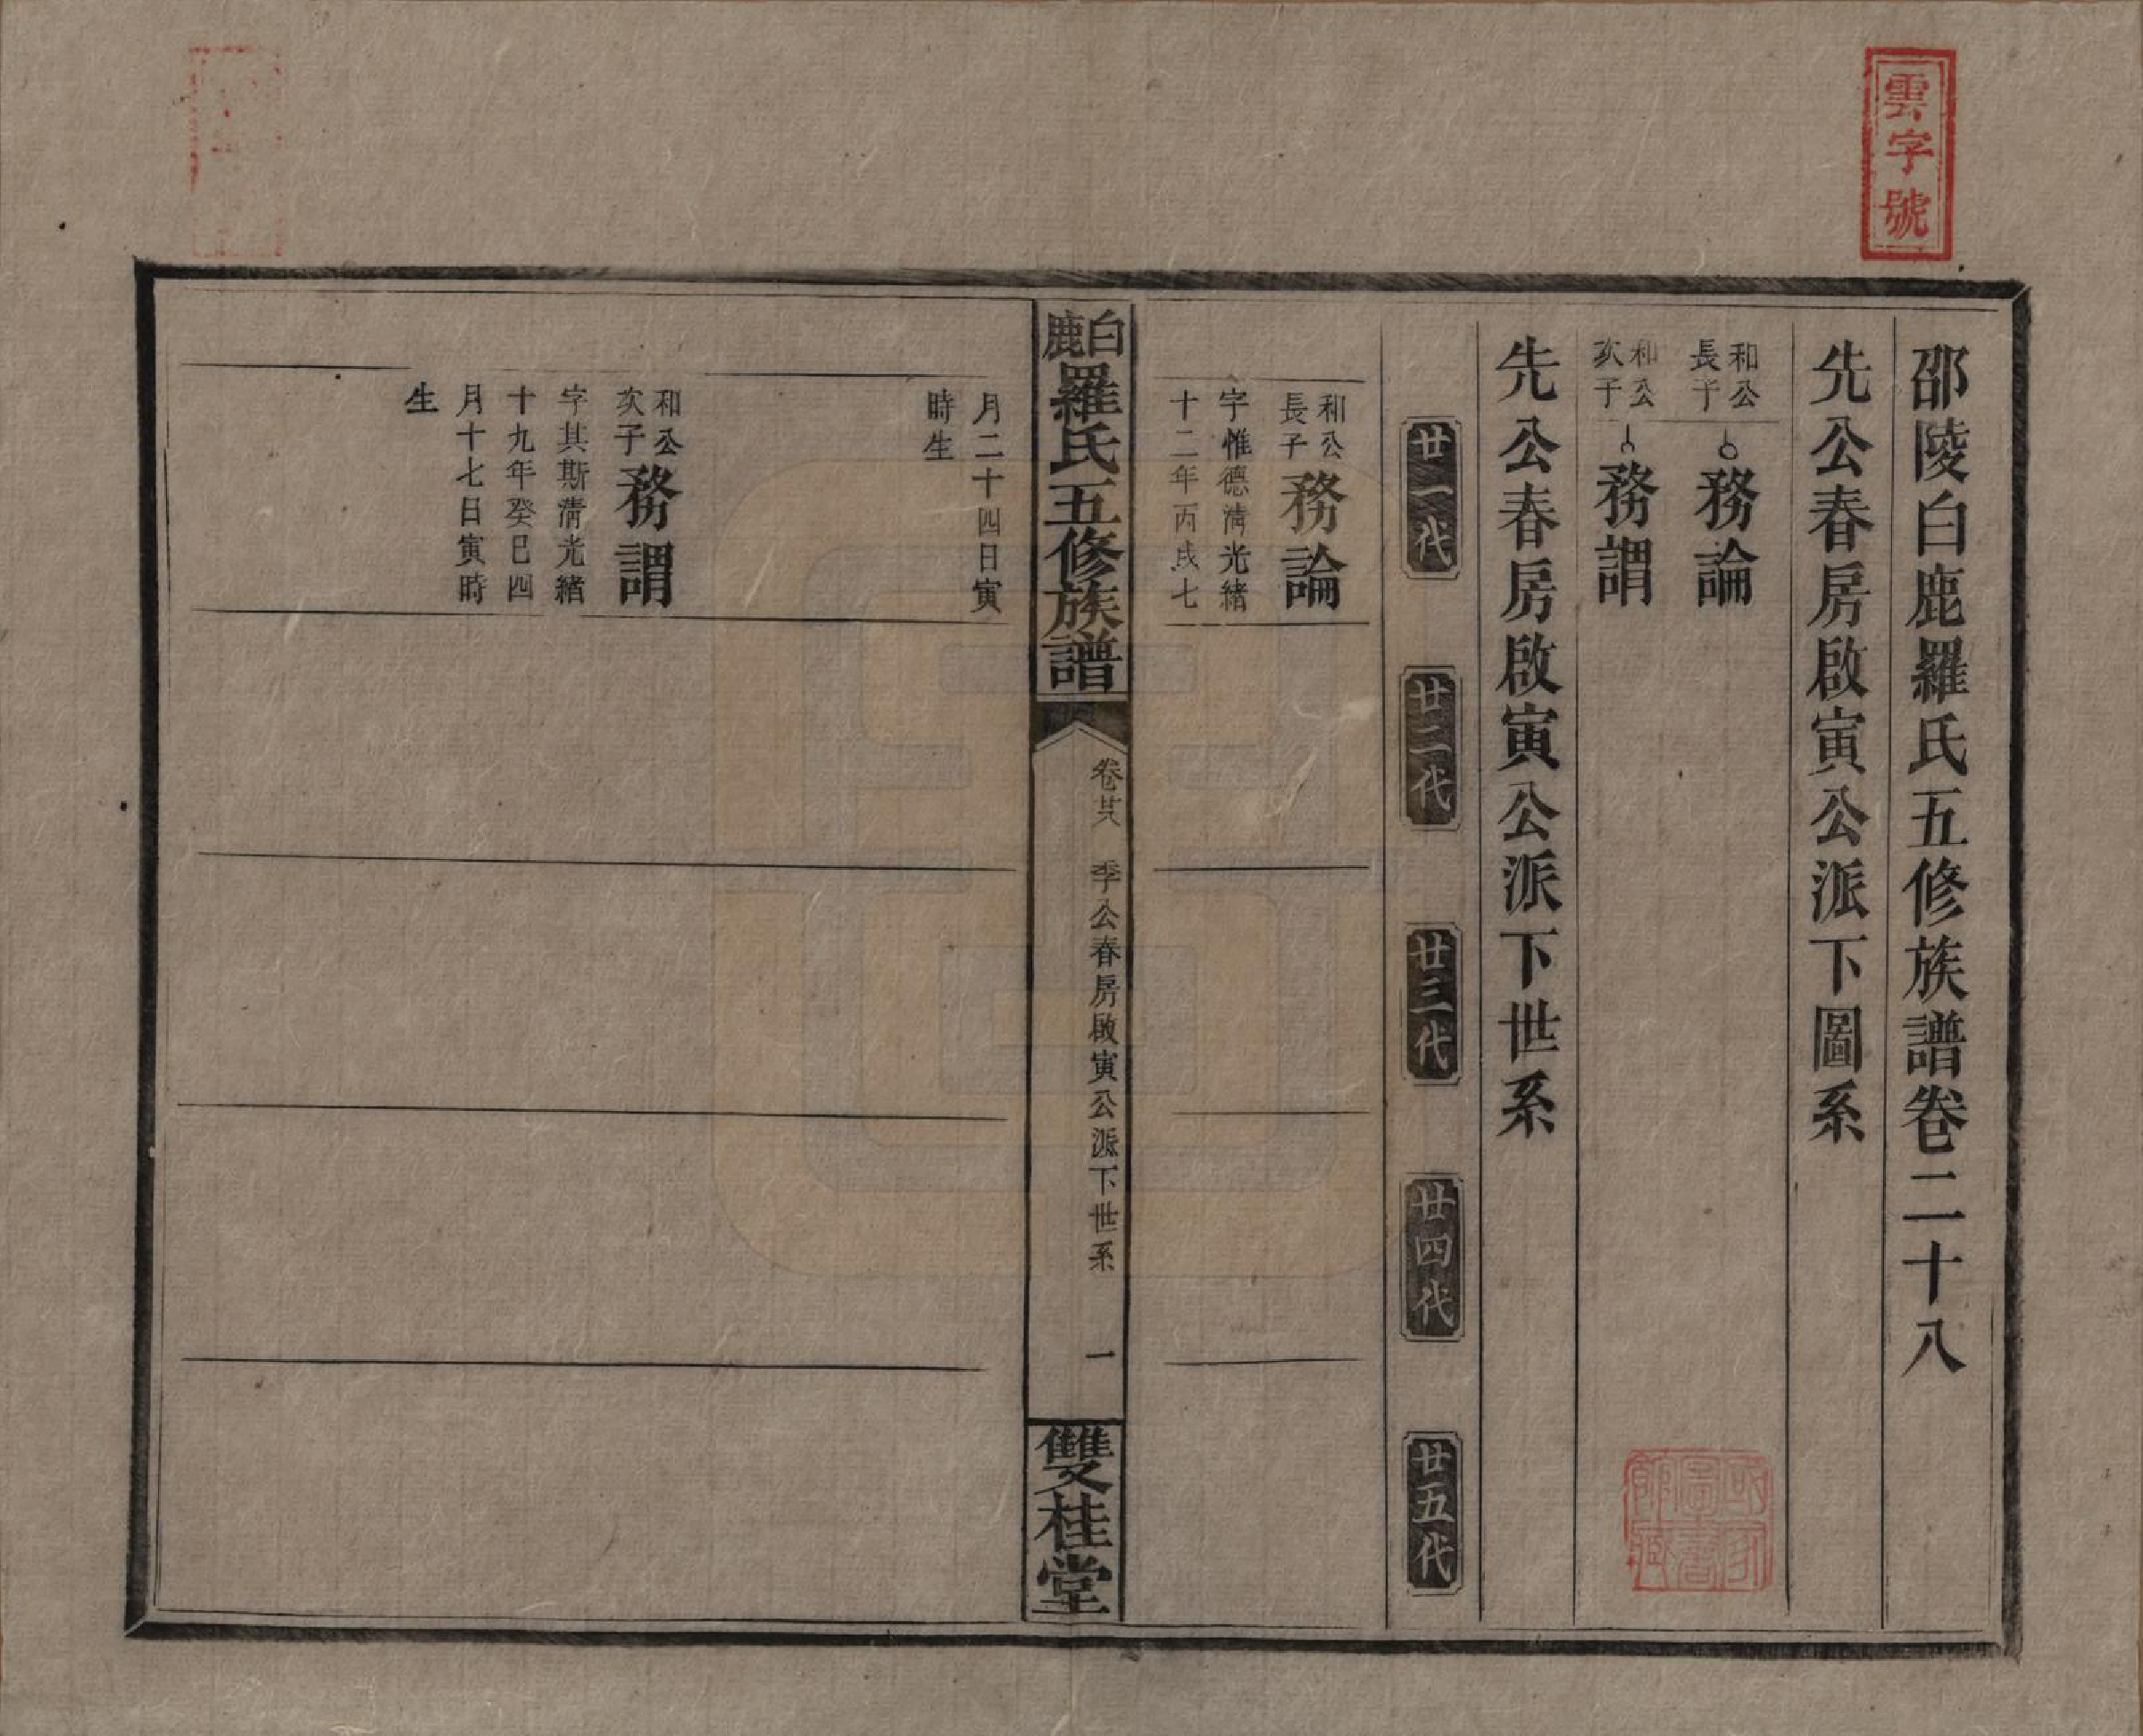 雲字號
邵陵白鹿羅氏五修族譜卷二十八
先公春房啟寅公派下圖系
和公長子 務論
和公次子 務謂
先公春房啟寅公派下世系
廿一代 廿二代 廿三代 廿四代 廿五代
和公長子 務論
字惟德清光緒
十二年丙戌七
白鹿羅氏五修族譜 卷廿八 季公春房啟寅公派下世系 一 雙桂堂
月二十四日寅
時生
和公次子 務謂
字其斯清光緒
十九年癸巳四
月十七日寅時
生